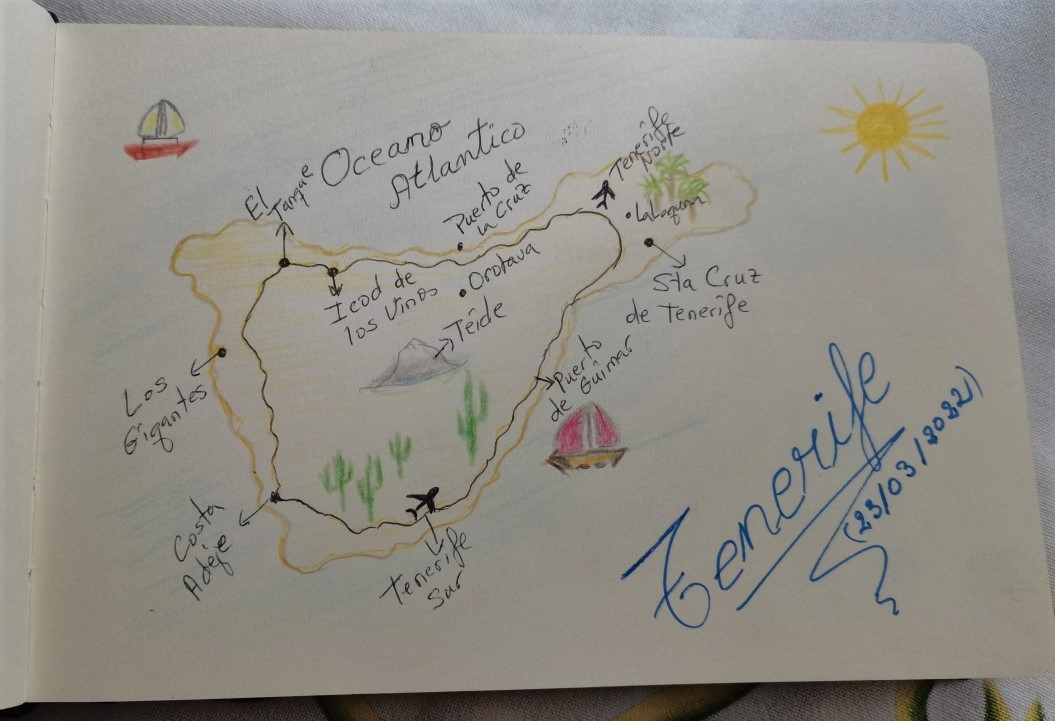 Oceano
Atlantico
El
Tanque
Puerto de
la Cruz
Tenerife
Norte
La Laguna
Icod de
los Vinos
Orotava
Teide
Sta Cruz
de Tenerife
Los
Gigantes
Puerto
de Guimar
Costa
Adeje
Tenerife
Sur
Tenerife
(23/03/2022)